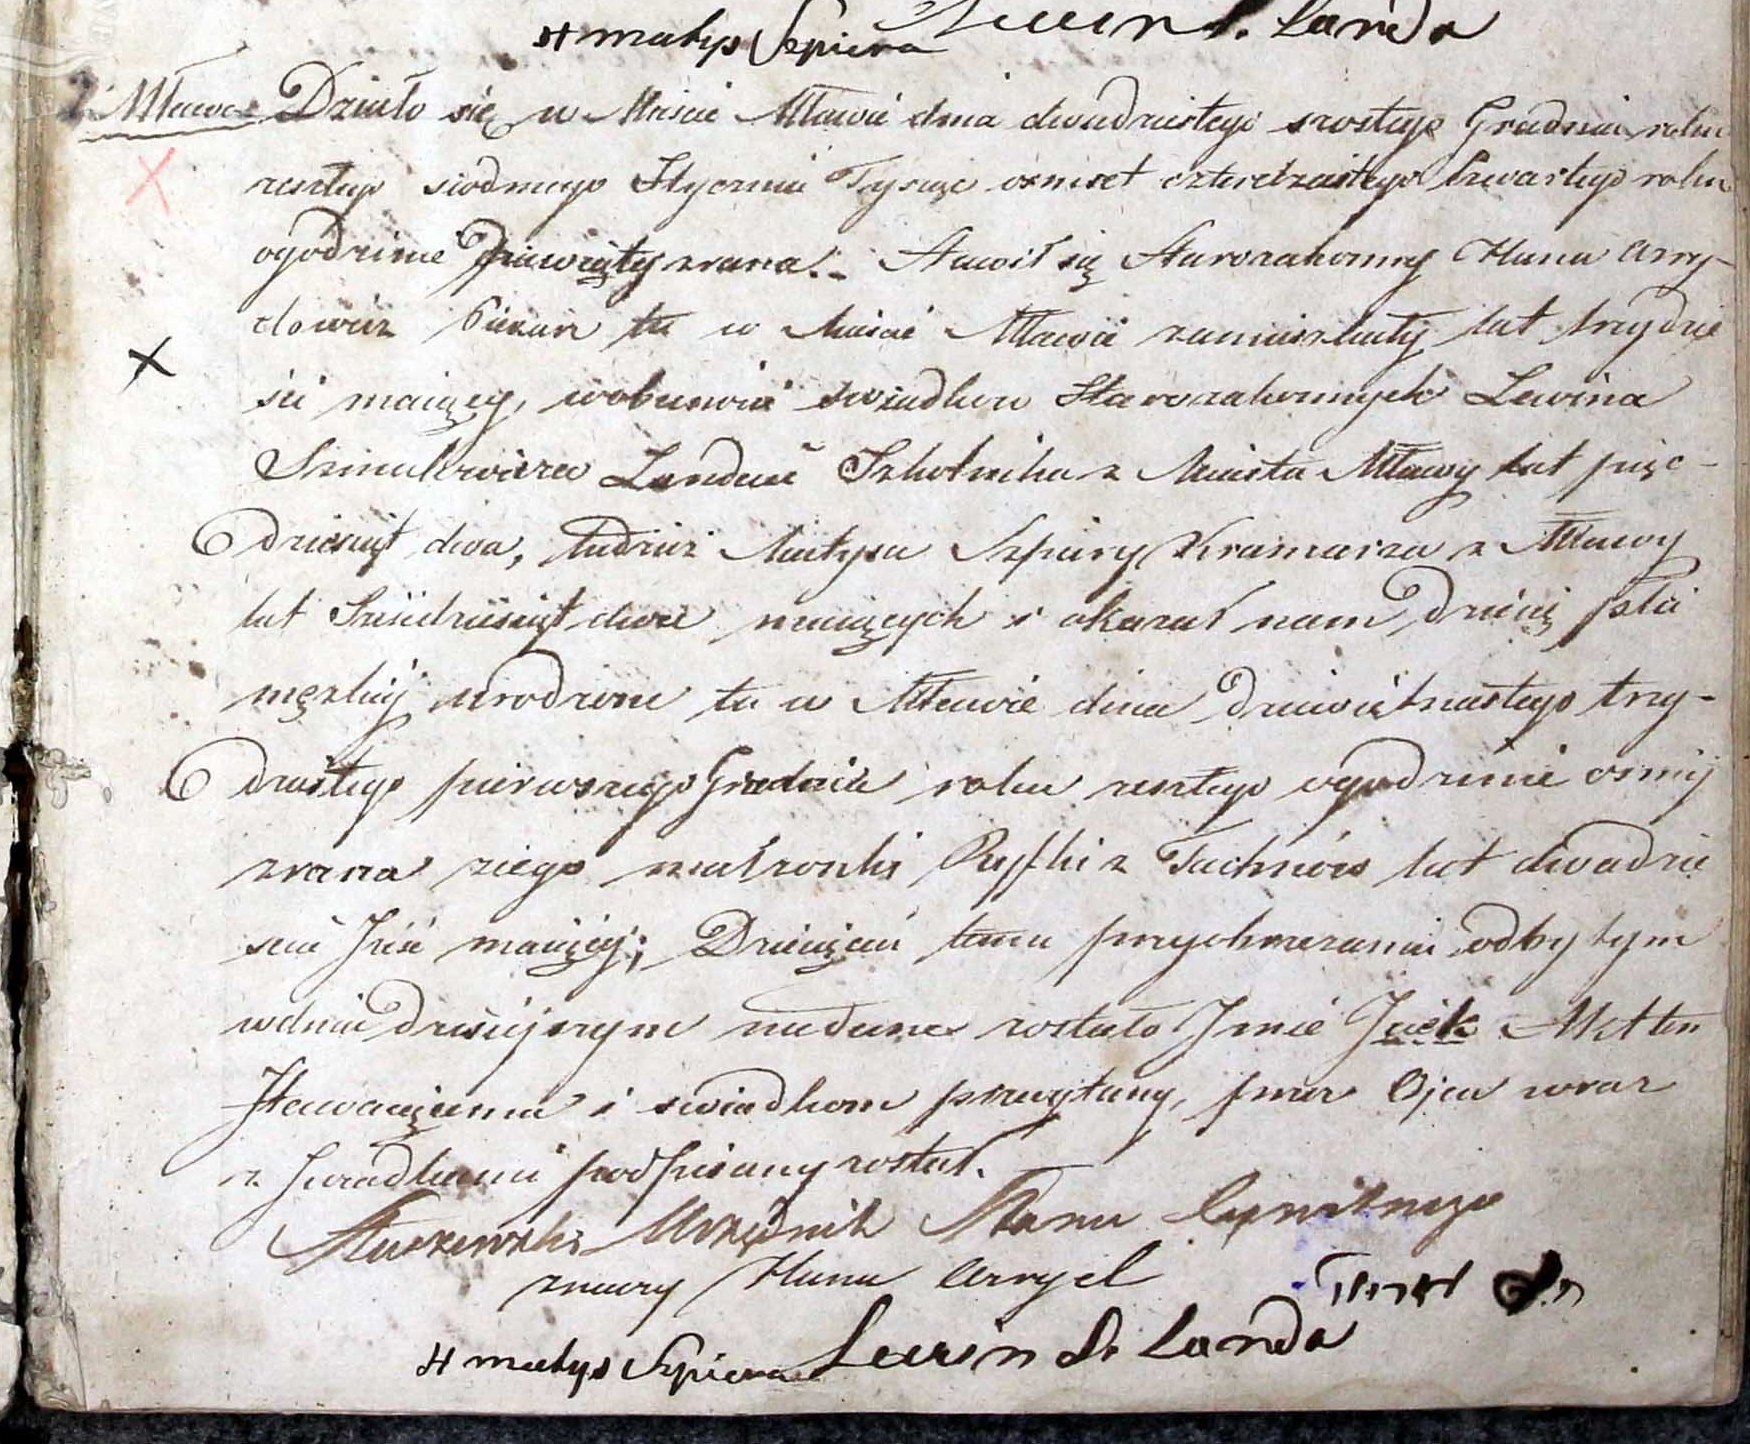 H matys Szpiera Lewin S. Landa
2. Mława Działo się w Mieście Mławie dnia dwudziestego szostego Grudnia roku
zeszłego siodmego Stycznia Tysiąc osmset czterdziestego Czwartego roku
ogodzinie Dziewiąty zrana. Stawił się Starozakonny Hunu Arry-
lowicz Piekarz tu w Mieście Mławie zamieszkały lat trzydzie
ści maiący, wobecności swiadkow Starozakonnych Lewina
Szmulowicza Landau Szkolnika z Miasta Mławy lat pięc-
dziesiąt dwa, tudzież Matysa Szpiery Kramarza z Mławy
lat Sześćdziesiąt dwa maiących i okazał nam Dziecię płci
męzkiej urodzone tu w Mławie dnia Dziewiętnastego trzy-
dziestego pierwszego Grudnia roku zeszłego ogodzinie osmij
zrana ziego małżonki Ryfki z Tachnów lat dwadzie
scia Jeść maiącej; Dziecięciu temu przy obrzezaniu odbytym
wdniu dzisiejszym nadane zostało Jmie Jcek Akt ten
Stawaiącemu i swiadkom przeczytany, przez Ojca wraz
z Swiadkami podpisany został.
Urzędnik Stanu Cywilnego
znaczy Hunu Arryel
H matys Szpiera Lewin S. Landa